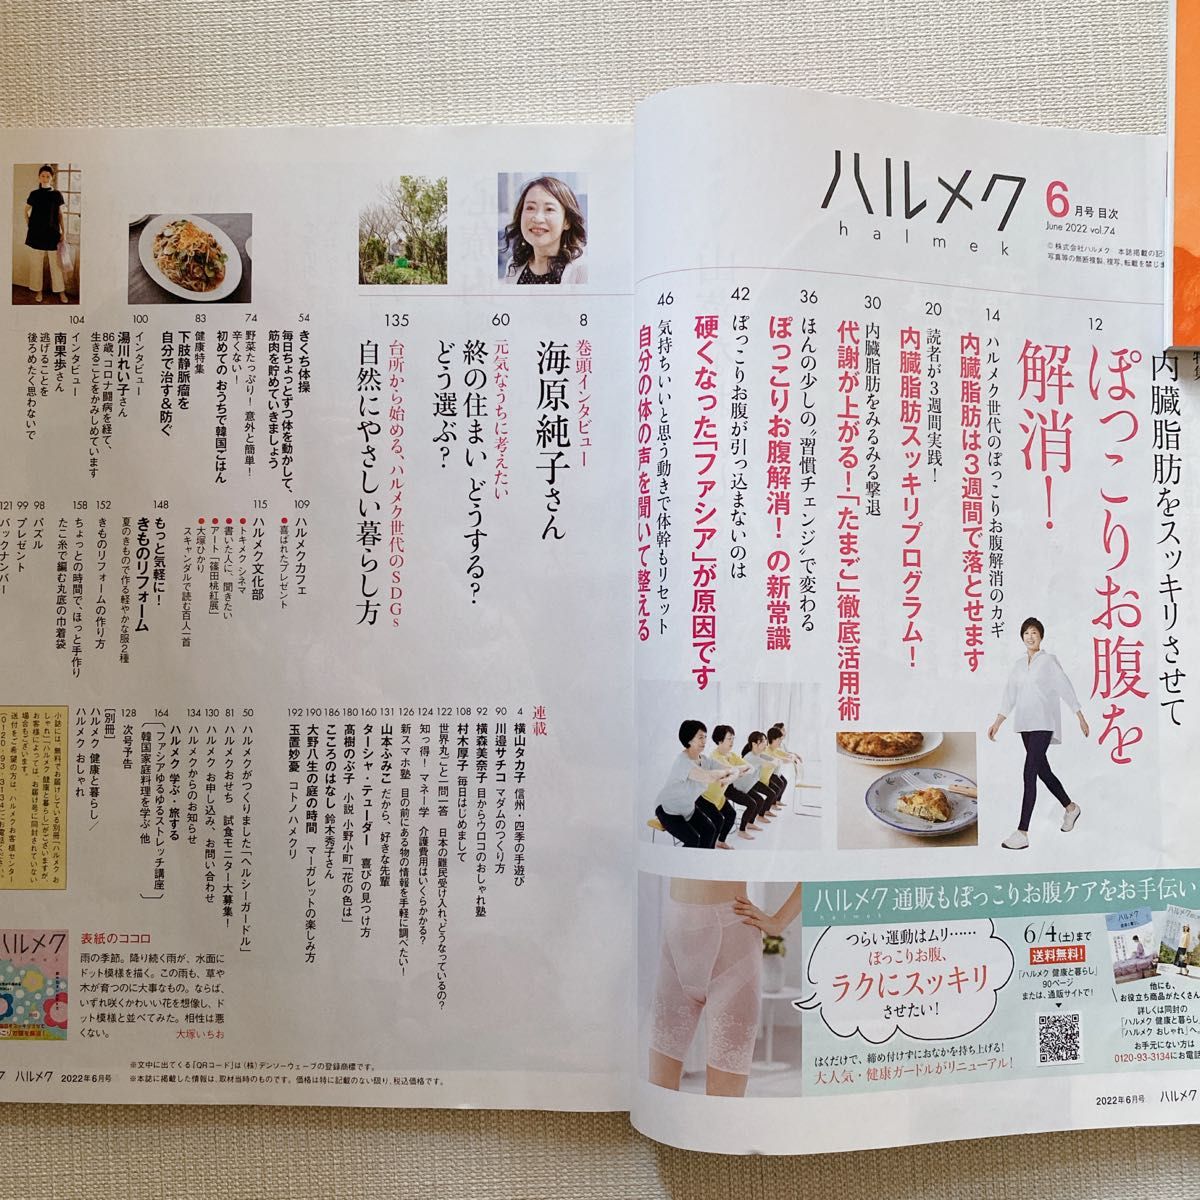 ハルメク
halmek
6月号 目次
June 2022 vol.74
内臓脂肪をスッキリさせて
12
ぽっこりお腹を
解消！
14
ハルメク世代のぽっこりお腹解消のカギ
内臓脂肪は3週間で落とせます
20
読者が3週間実践！
内臓脂肪スッキリプログラム！
30
内臓脂肪をみるみる撃退
代謝が上がる！「たまご」徹底活用術
36
ほんの少しの“習慣チェンジ”で変わる
ぽっこりお腹解消！の新常識
42
ぽっこりお腹が引っ込まないのは
硬くなった「ファシア」が原因です
46
気持ちいいと思う動きで体幹もリセット
自分の体の声を聞いて整える
ハルメク 通販もぽっこりお腹ケアをお手伝い
halmek
つらい運動はムリ……
ぽっこりお腹、
ラクにスッキリ
させたい！
6/4(土)まで
送料無料！
「ハルメク 健康と暮らし」
90ページ
または、通販サイトで！
他にも、
お役立ち商品がたくさん
詳しくは同封の
「ハルメク 健康と暮らし」
「ハルメク おしゃれ」へ。
お手元にない方は
0120-93-3134にお電話
はくだけで、締め付けずにおなかを持ち上げる！
大人気・健康ガードルがリニューアル！
2022年6月号 ハルメク
8
巻頭インタビュー
海原純子さん
60
元気なうちに考えたい
終の住まい、どうする？
どう選ぶ？
135
台所から始める、ハルメク世代のSDGs
自然にやさしい暮らし方
54
きくち体操
毎日ちょっとずつ体を動かして、
筋肉を貯めていきましょう
74
野菜たっぷり！意外と簡単！
辛くない！
初めてのおうちで韓国ごはん
83
健康特集
下肢静脈瘤を
自分で治す＆防ぐ
100
インタビュー
湯川れい子さん
86歳、「コロナ闘病を経て、
生きることをかみしめています
104
インタビュー
南果歩さん
逃げることを
後ろめたく思わないで
109
ハルメクカフェ
●喜ばれたプレゼント
115
ハルメク文化部
●トキメクシネマ
●書いた人に、聞きたい
●アート「篠田桃紅展」
●大塚ひかり
スキャンダルで読む百人一首
148
もっと気軽に！
きものリフォーム
夏のきもので作る軽やかな服2種
152
きものリフォームの作り方
158
ちょっとの時間で、ほっと手作り
たこ糸で編む丸底の巾着袋
98
パズル
99
プレゼント
121
バックナンバー
連載
4 横山タカ子 信州・四季の手遊び
90 川邉サチコ マダムのつくり方
92 横森美奈子 目からウロコのおしゃれ塾
108 村木厚子 毎日はじめまして
122 世界丸ごと一問一答 日本の難民受け入れ、どうなっているの？
124 知っ得！マネー学 介護費用はいくらかかる？
126 新スマホ塾 目の前にある物の情報を手軽に調べたい！
131 山本ふみこ だから、好きな先輩
160 ターシャ・テューダー 喜びの見つけ方
180 髙樹のぶ子 小説 小野小町「花の色は」
186 こころのはなし 鈴木秀子さん
190 大野八生の庭の時間 マーガレットの楽しみ方
192 玉置妙憂 コトノハメクリ
50 ハルメクがつくりました「ヘルシーガードル」
81 ハルメクおせち 試食モニター大募集！
130 ハルメク お申し込み、お問い合わせ
134 ハルメクからのお知らせ
164 ハルメク 学ぶ・旅する
「ファシアゆるゆるストレッチ講座」
韓国家庭料理を学ぶ 他
128 次号予告
［別冊］
ハルメク 健康と暮らし／
ハルメク おしゃれ
表紙のココロ
雨の季節。降り続く雨が、水面に
ドット模様を描く。この雨も、草や
木が育つのに大事なもの。ならば、
いずれ咲くかわいい花を想像し、ド
ット模様と並べてみた。相性は悪
くない。 大塚いちお
※文中に出てくる「QRコード」は(株)デンソーウェーブの登録商標です。
※本誌に掲載した情報は、取材当時のものです。価格は特に記載のない限り、税込価格です。
ハルメク 2022年6月号